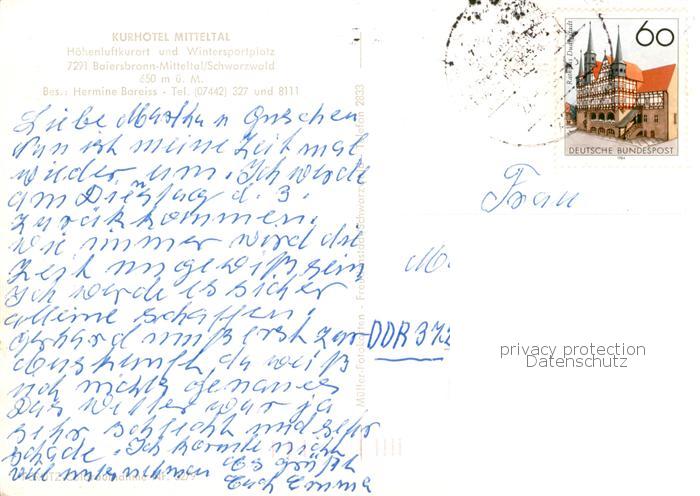 KURHOTEL MITTELTAL
Höhenluftkurort und Wintersportplatz
7291 Baiersbronn-Mitteltal/Schwarzwald
650 m ü. M.
Bes.: Hermine Bareiss - Tel. (07442) 327 und 8111
Liebe Martha u
Nun ist meine Zeit mal
wieder um. Ich werde
am Dienstag d. 3.
zurückkommen.
Wie immer wird die
Zeit ungewiß sein
Ich werde es sicher
alleine schaffen.
Gerhard muß erst zur
Auskunft, da weiß
ich nichts genaues
Das Wetter war ja
sehr schlecht und sehr
schade. Ich konnte nicht
viel unternehmen Es grüßt
Euch Emma
Frau
M.
DDR 372
60
Rathaus Duderstadt
DEUTSCHE BUNDESPOST
1984
privacy protection
Datenschutz